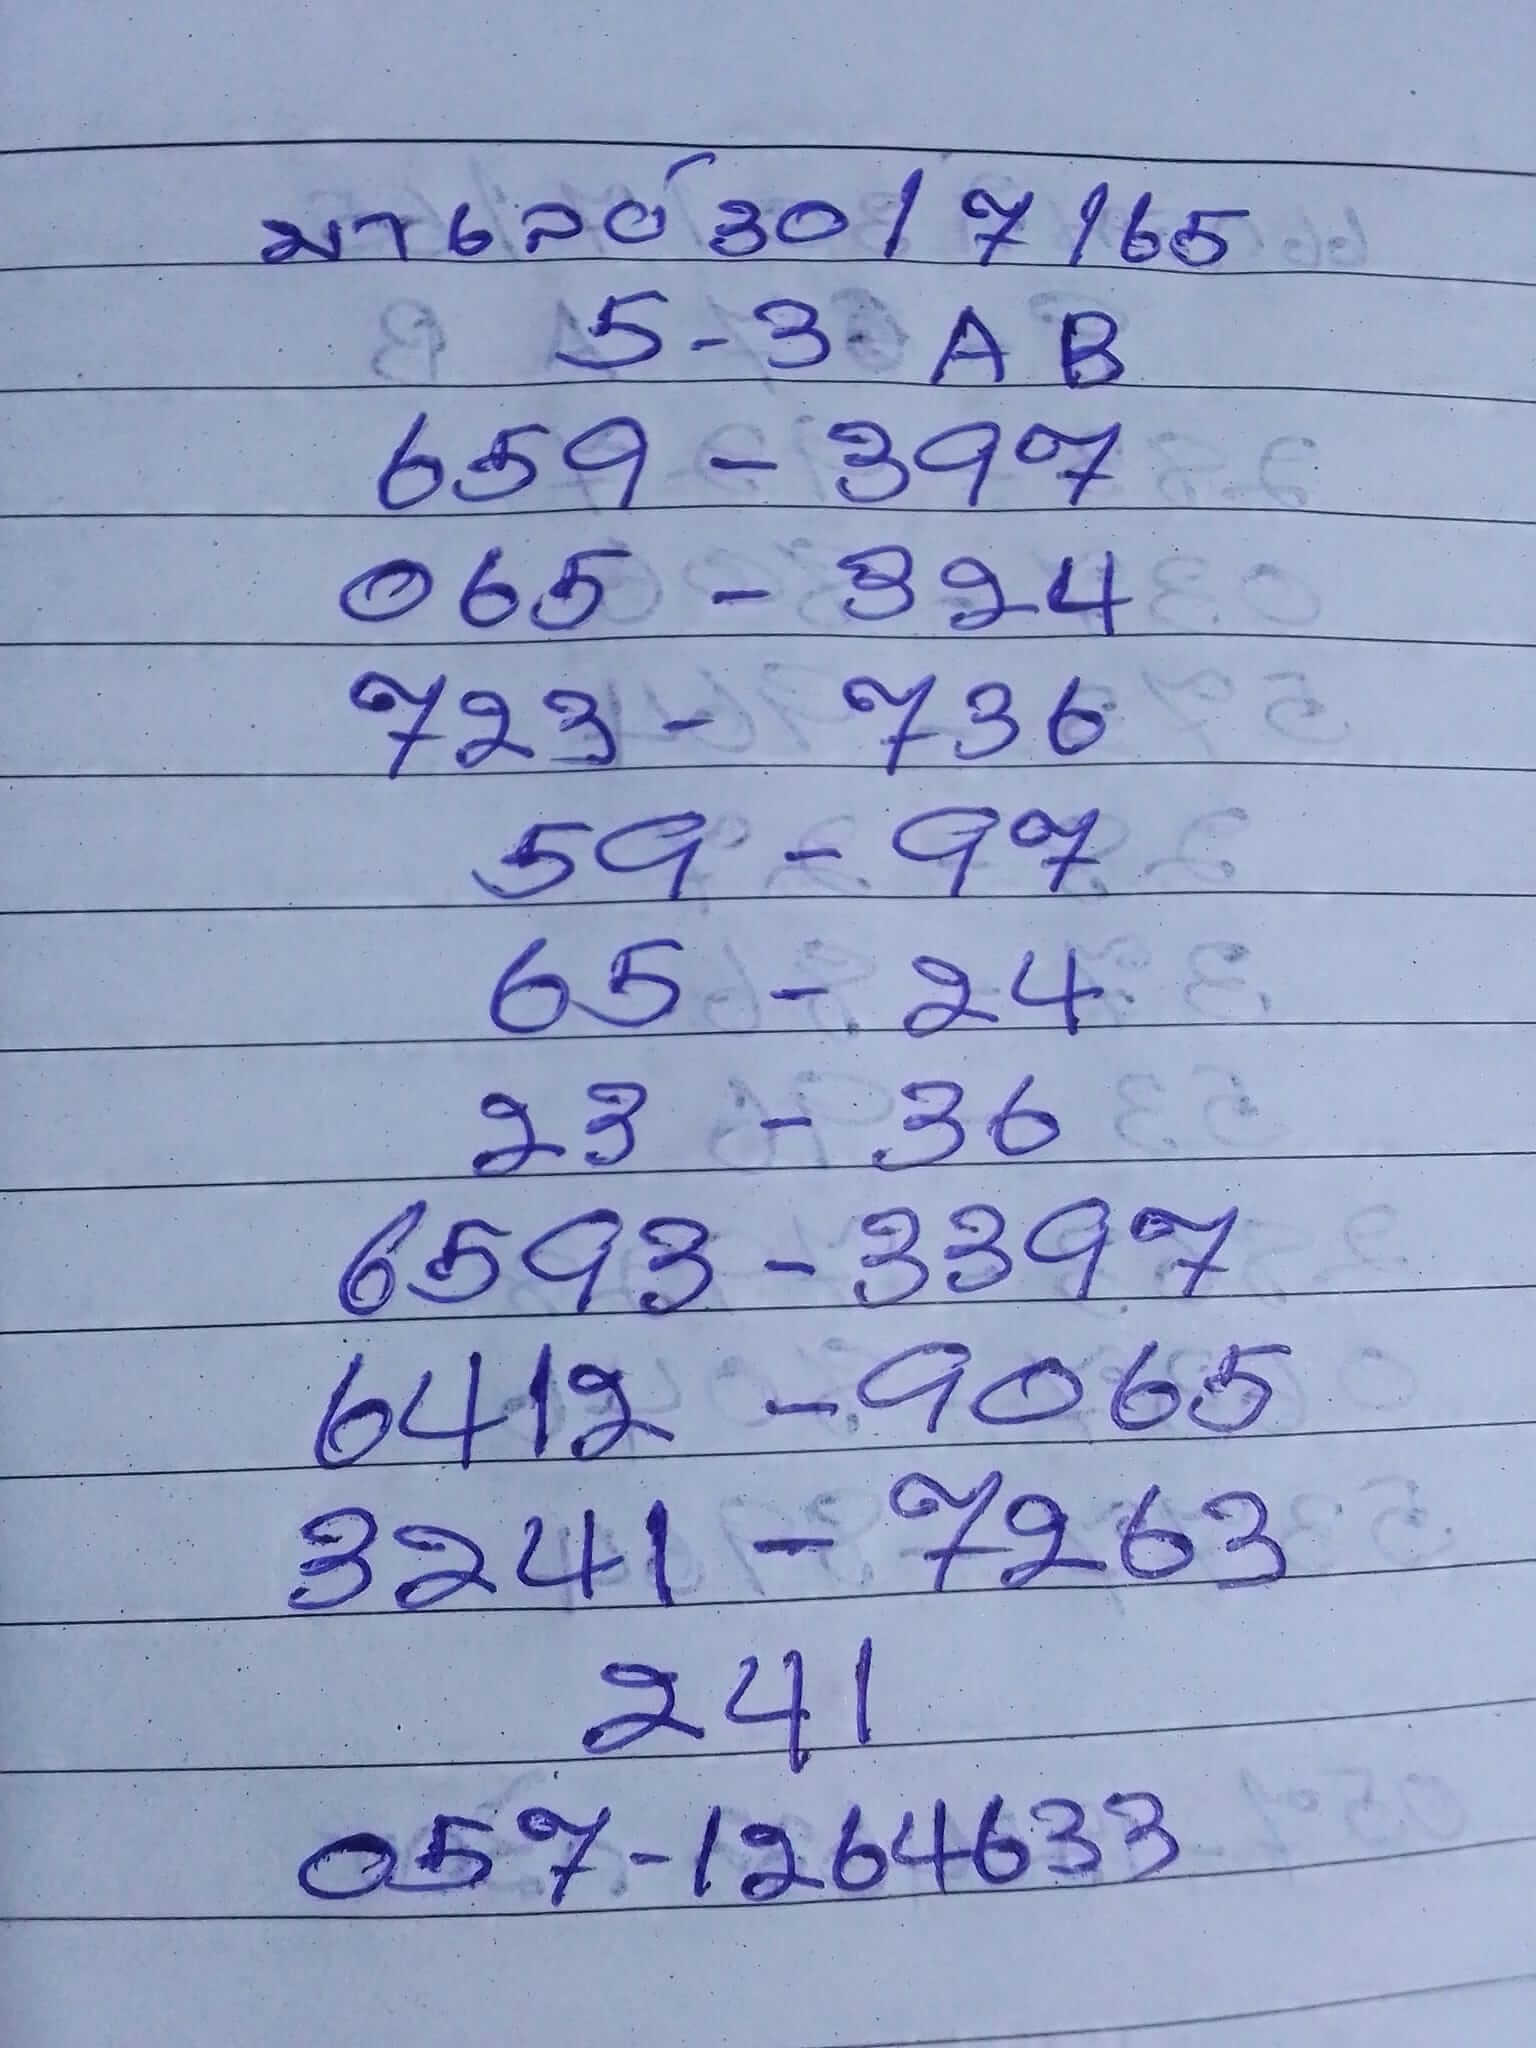 มาเลย์ 30/7/65
5-3 A B
659-397
065-324
723-736
59-97
65-24
23-36
6593-3397
6412-9065
3241-7263
241
057-1264633